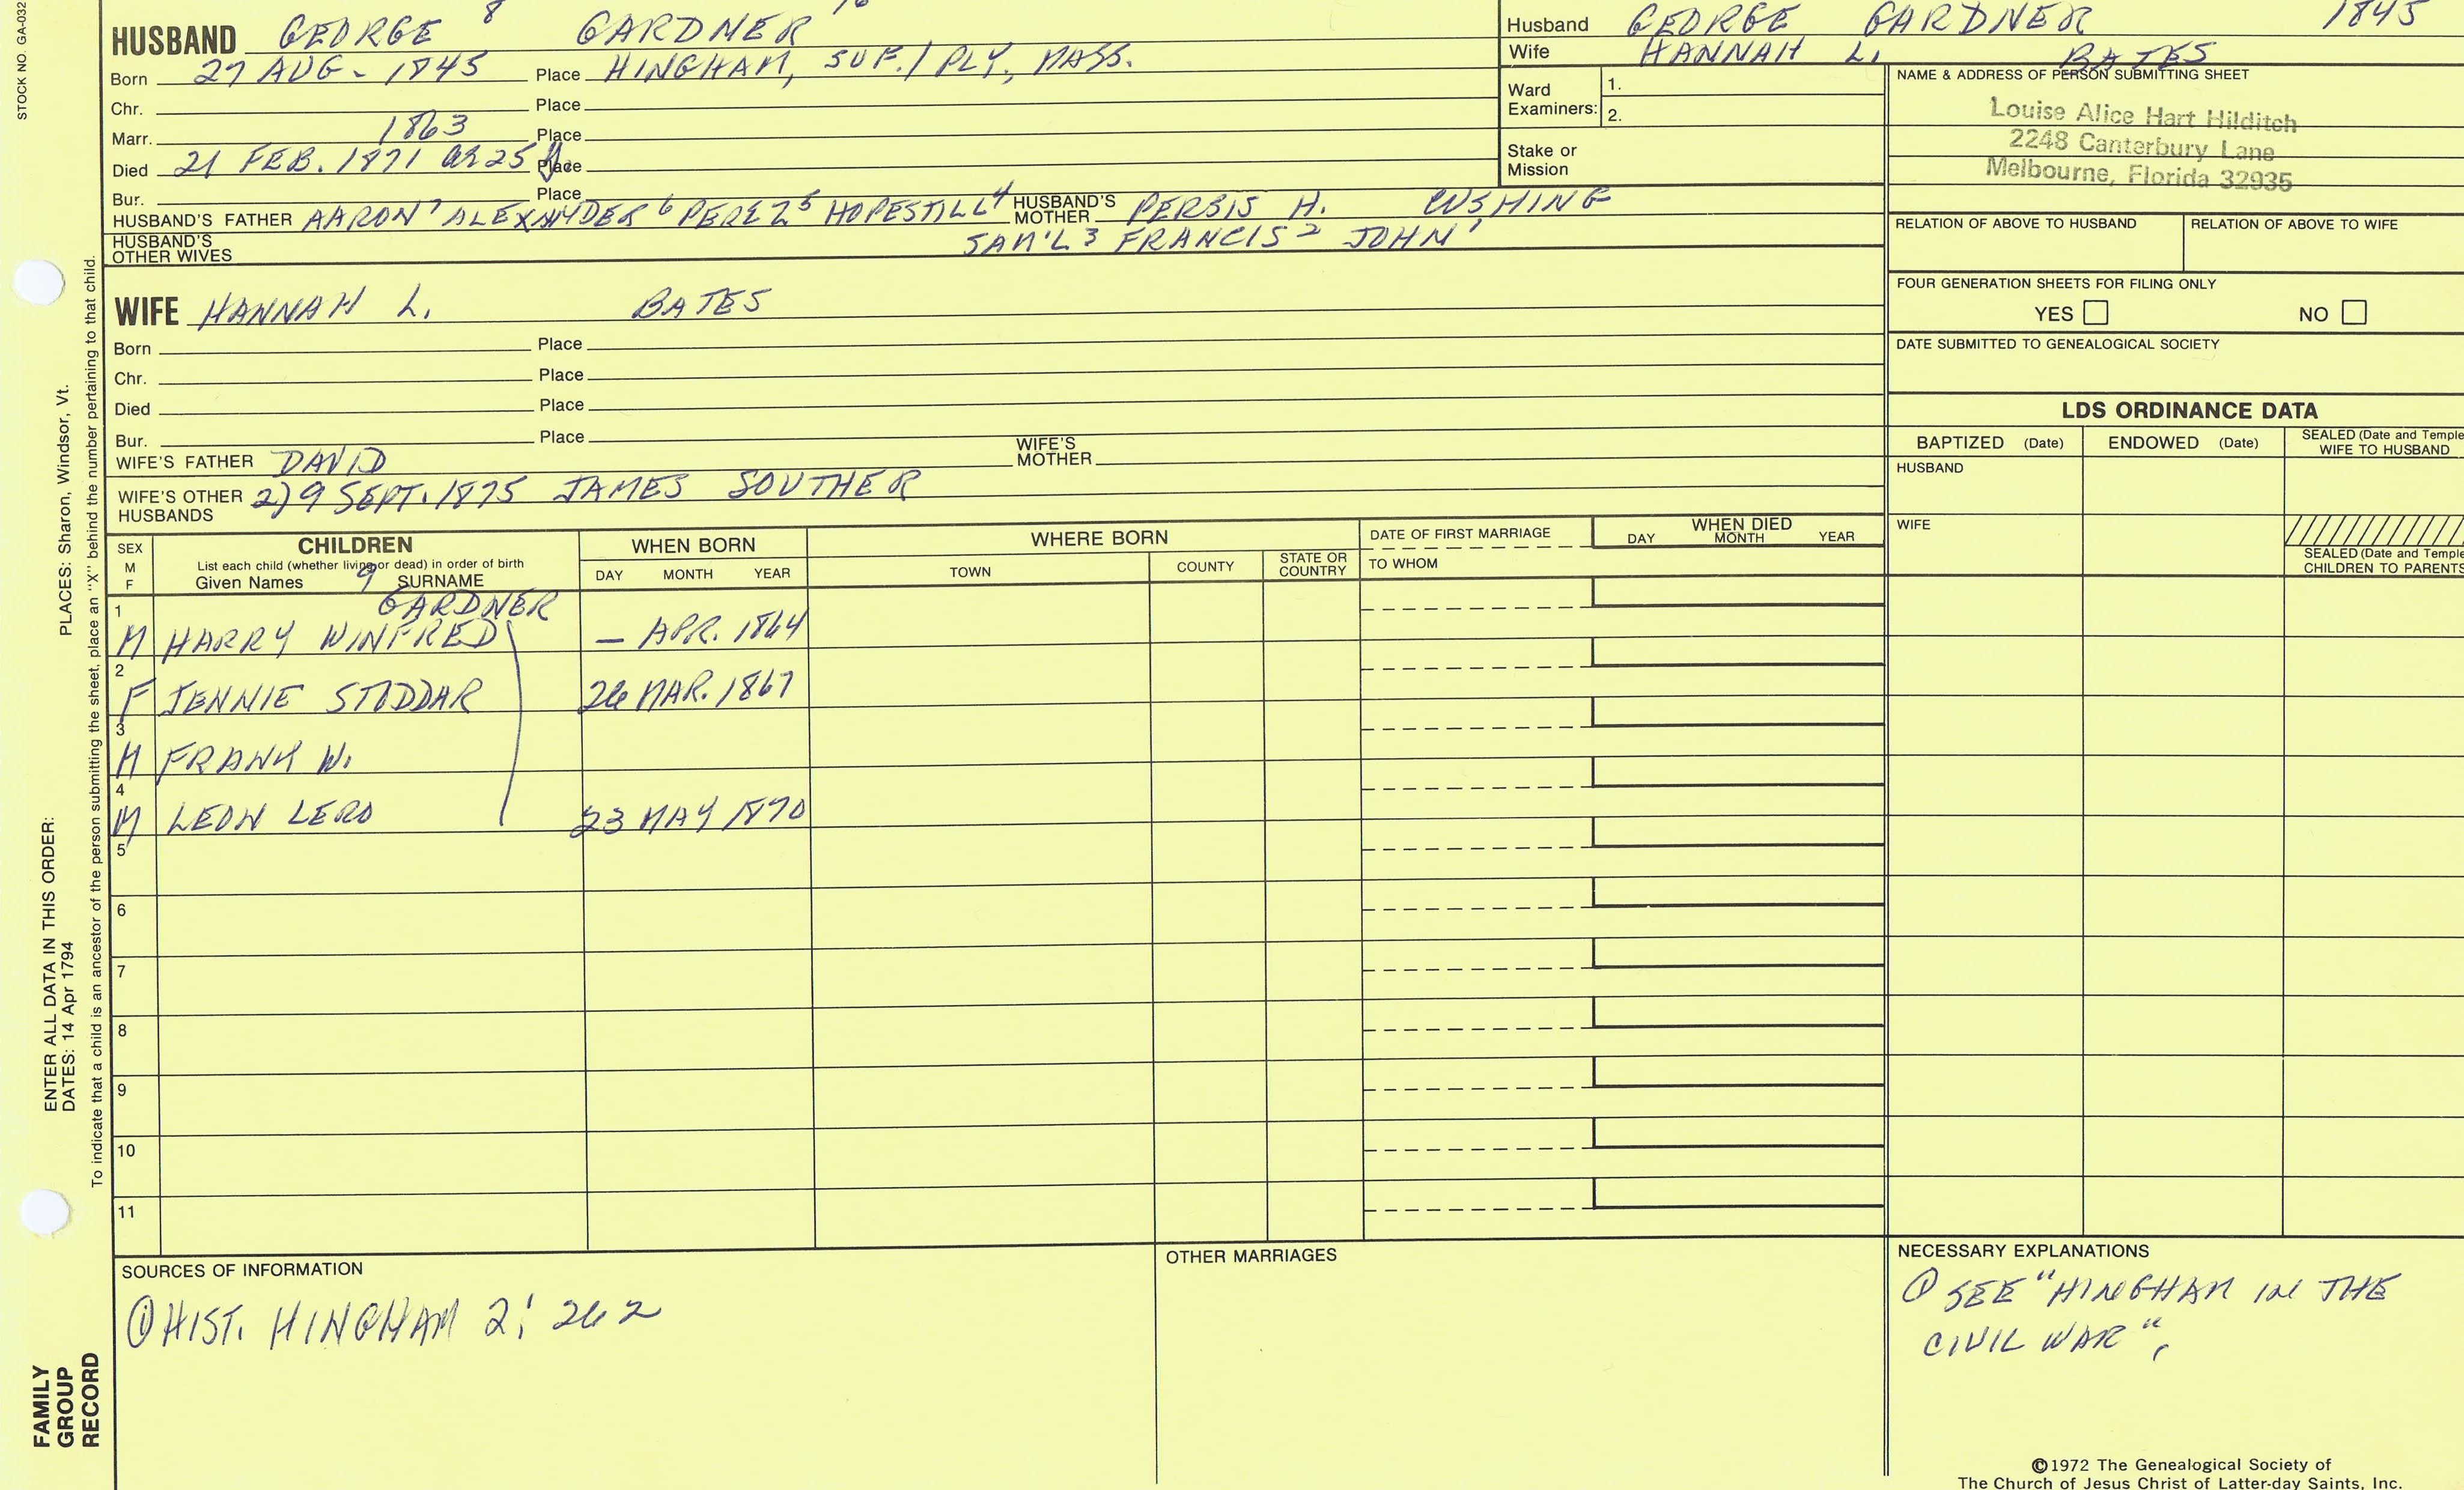 STOCK NO. GA-032
HUSBAND GEORGE 8 GARDNER
Born 27 AUG - 1845 Place HINGHAM, SUF. / PLY., MASS.
Chr. Place
Marr. 1863 Place
Died 21 FEB. 1871 Æ 25 Y Place
Bur. Place
HUSBAND'S FATHER AARON 7 ALEXANDER 6 PEREZ 5 HOPESTILL 4 HUSBAND'S MOTHER PERSIS H. CUSHING
HUSBAND'S OTHER WIVES SAM'L 3 FRANCIS 2 JOHN 1
Husband GEORGE GARDNER 1845
Wife HANNAH L. BATES
Ward Examiners: 1.
2.
Stake or Mission
NAME & ADDRESS OF PERSON SUBMITTING SHEET
Louise Alice Hart Hilditch
2248 Canterbury Lane
Melbourne, Florida 32935
RELATION OF ABOVE TO HUSBAND RELATION OF ABOVE TO WIFE
FOUR GENERATION SHEETS FOR FILING ONLY
YES NO
DATE SUBMITTED TO GENEALOGICAL SOCIETY
WIFE HANNAH L. BATES
Born Place
Chr. Place
Died Place
Bur. Place
WIFE'S FATHER DAVID WIFE'S MOTHER
WIFE'S OTHER HUSBANDS 2) 9 SEPT. 1875 JAMES SOUTHER
LDS ORDINANCE DATA
BAPTIZED (Date) ENDOWED (Date) SEALED (Date and Temple
WIFE TO HUSBAND
HUSBAND
WIFE
SEALED (Date and Temple
CHILDREN TO PARENTS
SEX M F
CHILDREN
List each child (whether living or dead) in order of birth
Given Names 9 SURNAME
WHEN BORN
DAY MONTH YEAR
WHERE BORN
TOWN COUNTY STATE OR COUNTRY
DATE OF FIRST MARRIAGE
TO WHOM
WHEN DIED
DAY MONTH YEAR
GARDNER
1 M HARRY WINFRED — APR. 1864
2 F JENNIE STODDAR 26 MAR. 1867
3 M FRANK W.
4 M LEON LERO 23 MAY 1870
5
6
7
8
9
10
11
SOURCES OF INFORMATION
① HIST. HINGHAM 2: 262
OTHER MARRIAGES
NECESSARY EXPLANATIONS
① SEE "HINGHAM IN THE
CIVIL WAR",
©1972 The Genealogical Society of
The Church of Jesus Christ of Latter-day Saints, Inc.
PLACES: Sharon, Windsor, Vt.
To indicate that a child is an ancestor of the person submitting the sheet, place an "X" behind the number pertaining to that child.
ENTER ALL DATA IN THIS ORDER:
DATES: 14 Apr 1794
FAMILY
GROUP
RECORD